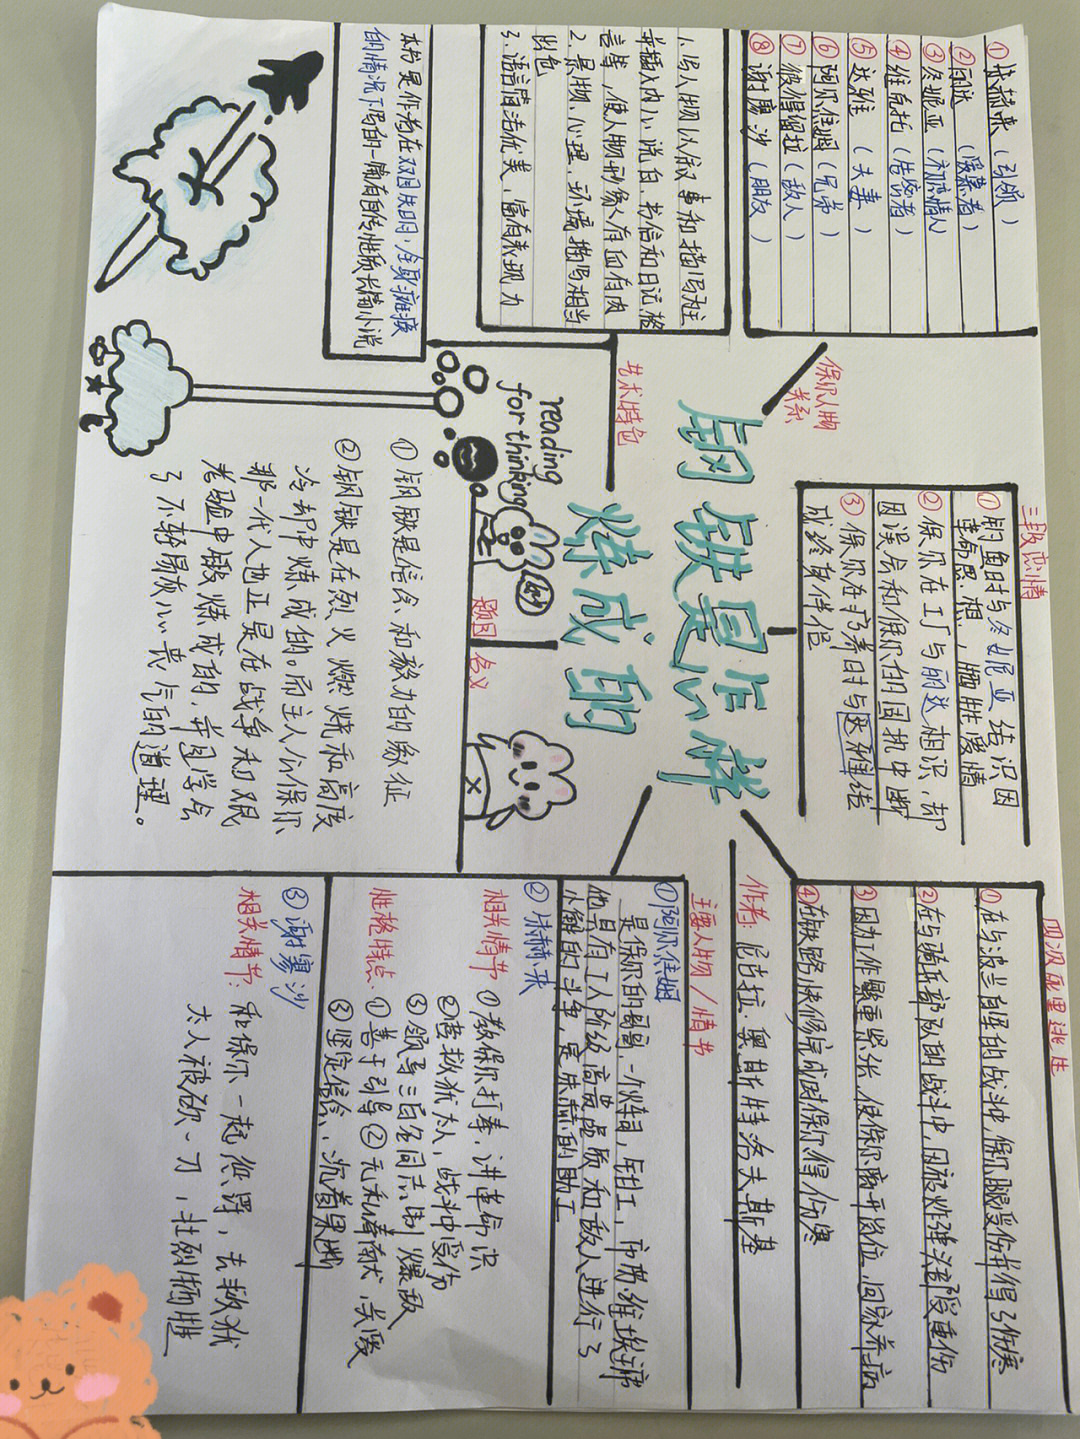 钢铁是怎样
炼成的
reading
for thinking
保尔人物
关系
①朱赫来（引领）
②丽达（爱慕者）
③冬妮亚（初恋情人）
④维克托（告密者）
⑤达雅（夫妻）
⑥阿尔焦姆（兄弟）
⑦彼得留拉（敌人）
⑧谢廖沙（朋友）
艺术特色
1.写人物以叙事和描写为主
并插入内心独白、书信和日记、格
言等，使人物形象有血有肉
2.景物、心理、环境描写相当
出色
3.语言简洁优美，富有表现力
本书是作者在双目失明，全身瘫痪
的情况下写的一篇有自传性质长篇小说
三段恋情
①钓鱼时与冬妮亚结识因
革命思想，牺牲爱情
②保尔在工厂与丽达相识，却
因误会和保尔的固执中断
③保尔在疗养日时与达雅结
成终身伴侣
题目
含义
①钢铁是信念和毅力的象征
②钢铁是在烈火燃烧和高度
冷却中炼成的。而主人公保尔
那一代人也正是在战争和艰
考验中锻炼成的，并且学会
了不轻易放心丧气的道理。
四次死里逃生
①在与波兰白军的战斗中，保尔腿受伤并得了伤寒
②在与骑兵部队的战斗中，因被炸弹头部受重伤
③因为工作繁重紧张，使保尔离开岗位，回家养病
④在铁路快修完成时保尔得伤寒
作者：尼古拉·奥斯特洛夫斯基
主要人物/情节
①阿尔焦姆
是保尔的哥哥，火车司，钳工，市苏维埃主席
他具有工人阶级高贵品质和敌人进行了
小镇的斗争，是朱赫的助工
②朱赫来
相关情节 ①教保尔打拳，讲革命识
②营救犹太人，战斗中受伤
③领导三百名同志制爆敌
性格特点：①善于引导②无私奉献、关爱
③坚定信念，沉着果断
③谢廖沙
相关情节：和保尔一起煎熬，去救犹
太人被砍一刀，壮烈牺牲